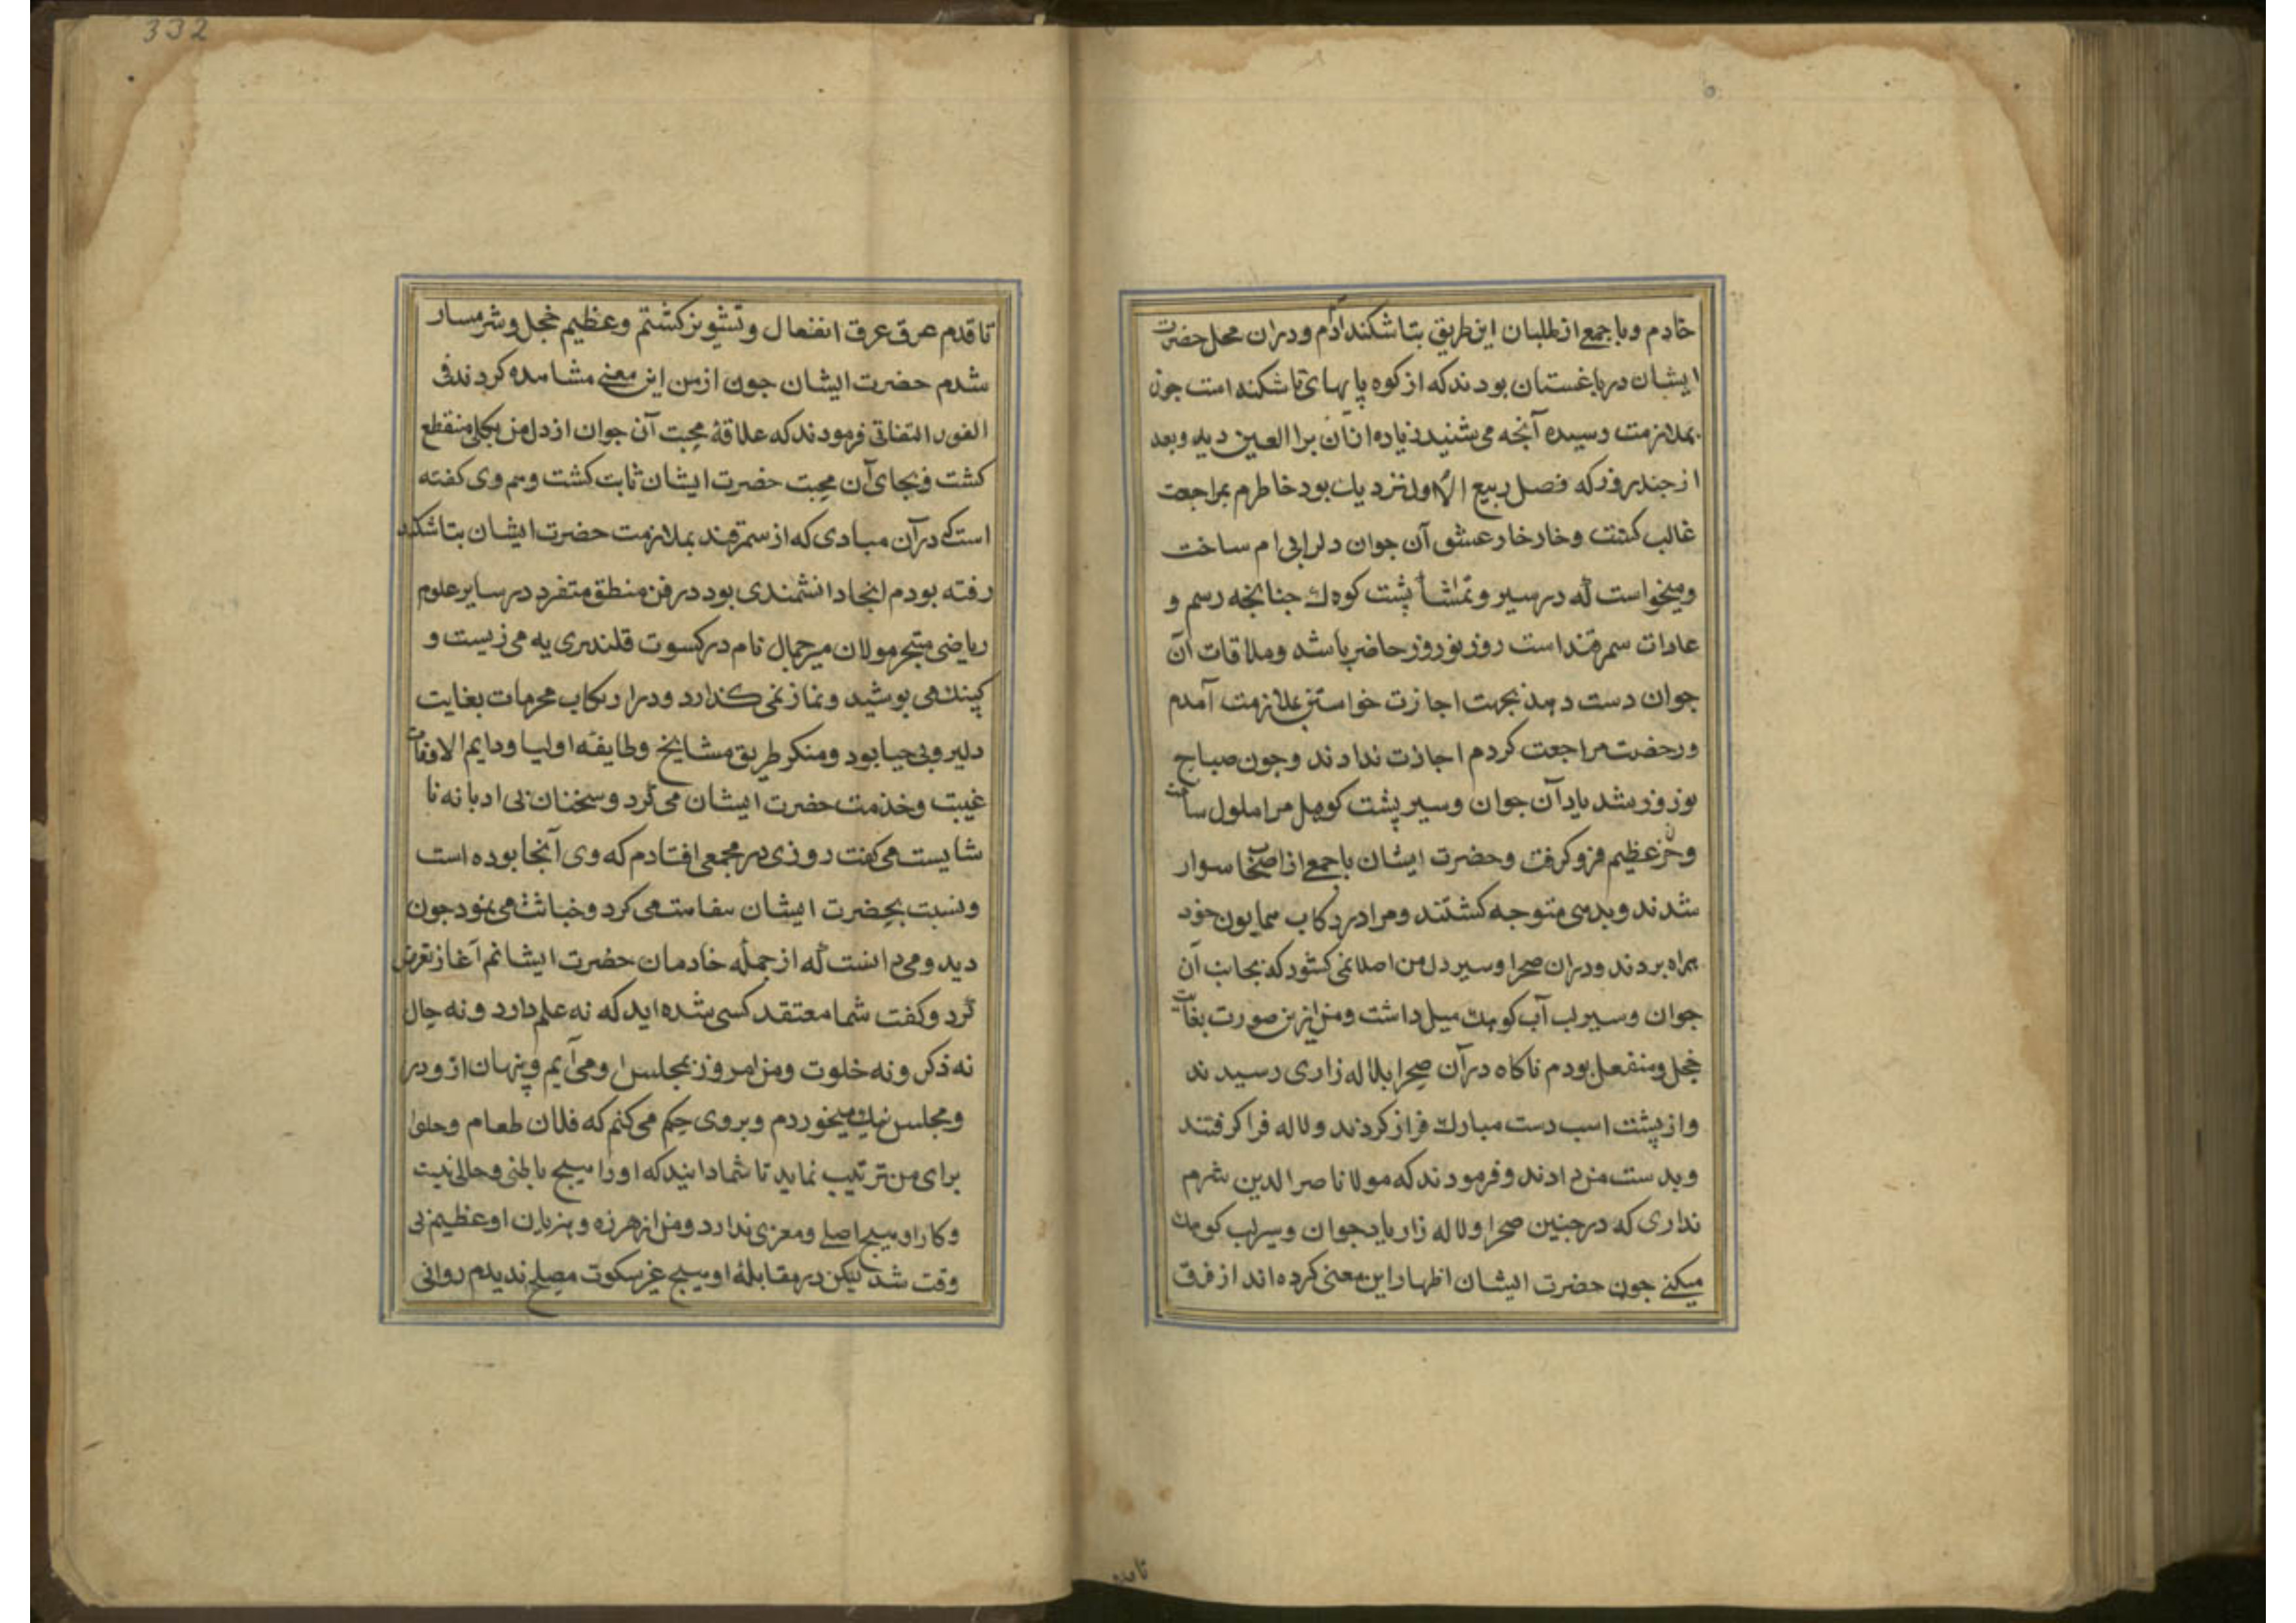 خادم وبا جمعی از طلبان این طریق بتاشکند آدم ودران محل حضرت
ایشان در باغستان بودند که از کوه پا یهای تاشکند است جون
بملازمت رسیده آنجه می شنید زیاده ازان برا العین دید وبعد
از جند روز که فصل ربیع الاول نزدیك بود خاطرم بمراجعت
غالب کشت وخار خار عشق آن جوان دل ام ساخت
ومیخواست که در سیر وتماشأ پشت کوهك جنانجه رسم و
عادات سمرقند است روز نوروز حاضر باشد وملاقات آن
جوان دست دهد بجهت اجازت خواستن بملازمت آمدم
ورخصت مراجعت کردم اجازت ندادند وجون صباح
نوروز شد یاد آن جوان وسیر پشت مرا ملول ساخت
وحزن عظیم فرو کرفت وحضرت ایشان با جمعی از اصحاب سوار
شدند متوجه کشتند ومرا در رکاب همایون خود
همراه بردند ودران صحرا وسیر دل من اصلا نمی کشود که بجانب آن
جوان وسیر لب آب کوهك میل داشت ومن ازین صورت بغایت
خجل ومنفعل بودم ناکاه درآن صحرا بلاله زاری رسیدند
واز پشت اسب دست مبارك فراز کردند ولاله فرا کرفتند
وبدست من دادند وفرمودند که مولانا ناصر الدین شرم
نداری که در جنین صحرا ولاله زار یاد جوان وسیر لب کوهك
میکنی جون حضرت ایشان اظهار این معنی کرده اند از فرق
تا قدم عرق عرق انفعال وتشویر کشتم وعظیم خجل وشرمسار
شدم حضرت ایشان جون از من این معنی مشاهده کردند فی
الفور التفاتی فرمودند که علاقهٔ محبت آن جوان از دل من بکلی منقطع
کشت وبجای آن محبت حضرت ایشان ثابت کشت وهم وی کفته
است که درآن مبادی که از سمرقند بملازمت حضرت ایشان بتاشکند
رفته بودم انجا دانشمندی بود در فن منطق متفرد در سایر علوم
ریاضی متبحر مولان میر جمال نام در کسوت قلندری یه می زیست و
کپنك می پوشید ونماز نمی کذارد ودر ارتکاب محرمات بغایت
دلیر وبی حیا بود ومنکر طریق مشایخ وطایفه اولیا ودایم الاوقات
غیبت وخذمت حضرت ایشان می کرد وسخنان بی ادبانه نا
شایست می کفت روزی در مجمعی افتادم که وی آنجا بوده است
ونسبت بحضرت ایشان سفاهت می کرد وخباثت می نمود جون
دید ومی دانست که از جمله خادمان حضرت ایشانم آغاز تعرض
کرد وکفت شما معتقد کسی شده اید که نه علم دارد ونه حال
نه ذکر ونه خلوت ومن امروز بمجلس او می آیم وپنهان از ودر
ومجلس میخوردم وبروی حکم می کنم که فلان طعام وحلوا
برای من ترتیب نماید تا شما دانید که اورا هیچ باطنی وحالی نیست
وکار او هیچ اصلی ومغزی ندارد ومن از هرزه وهزیان او عظیم بی
وقت شد لیکن در مقابلهٔ او هیچ غیر سکوت مصلح ندیدم روانی
332